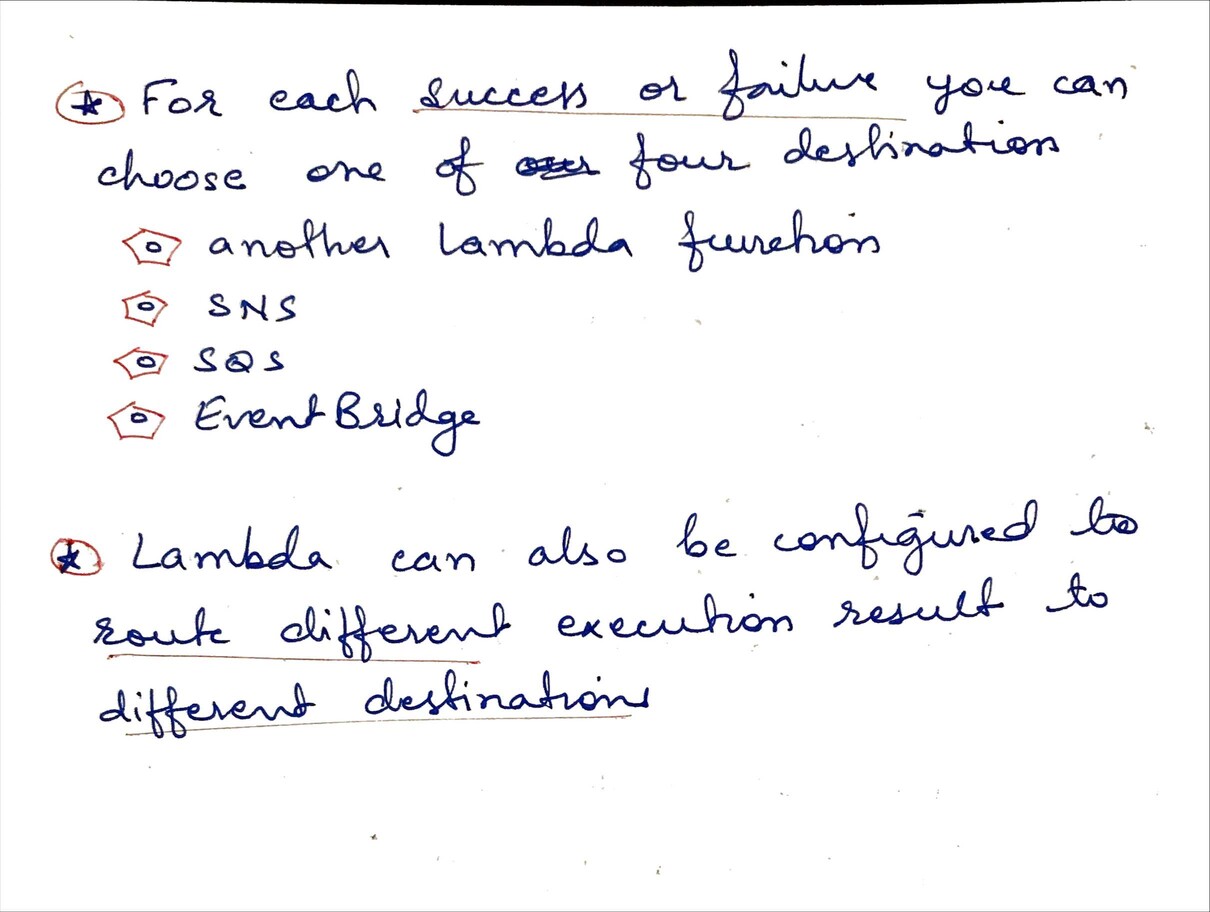 For each success or failure you can
choose one of four destination
another Lambda function
SNS
SQS
EventBridge
Lambda can also be configured to
route different execution result to
different destinations